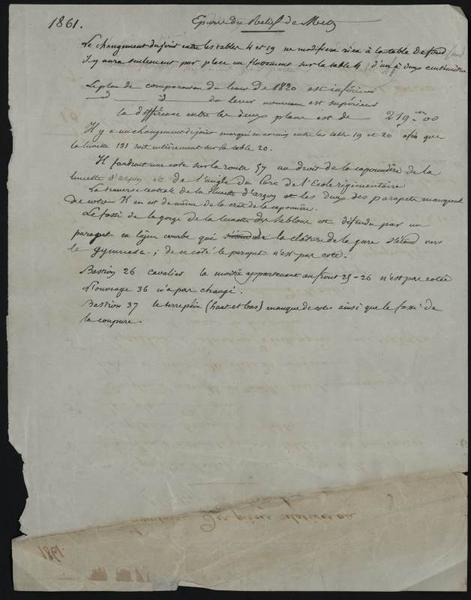 1861. Epure du Relief de Metz
Le changement du joint entre les tables 4 et 19 ne modifiera rien à la table de fond
il y aura seulement par place un flottement sur la table 4 d'un à deux centimètres
Le plan de comparaison du levé de 1820 est inférieur
du levé nouveau est supérieur
la différence entre les deux plans est de 219 m 00
Il y a un changement de joint marqué en entre les tables 19 et 20 afin que
la lunette 131 soit entièrement sur la table 20.
Il faudrait une cote sur la route 57 au droit de la caponnière de la
lunette d'arçon et de l'angle du Parc de l'Ecole régimentaire
La traverse centrale de la lunette d'arçon et les deux des parapets manquent
de cotes. Il en est de même de la crête de la caponnière.
Le fossé de la gorge de la lunette est défendu par un
parapet en ligne courbe qui la clôture de la gare s'étend vers
le gymnase ; de ce côté le parapet n'est pas coté.
Bastion 26 cavalier la moitié appartenant au front 25-26 n'est pas cotée
L'ouvrage 36 n'a pas changé.
Bastion 37 le terreplein (haut et bas) manque de cotes ainsi que le fossé de
la coupure.
1861